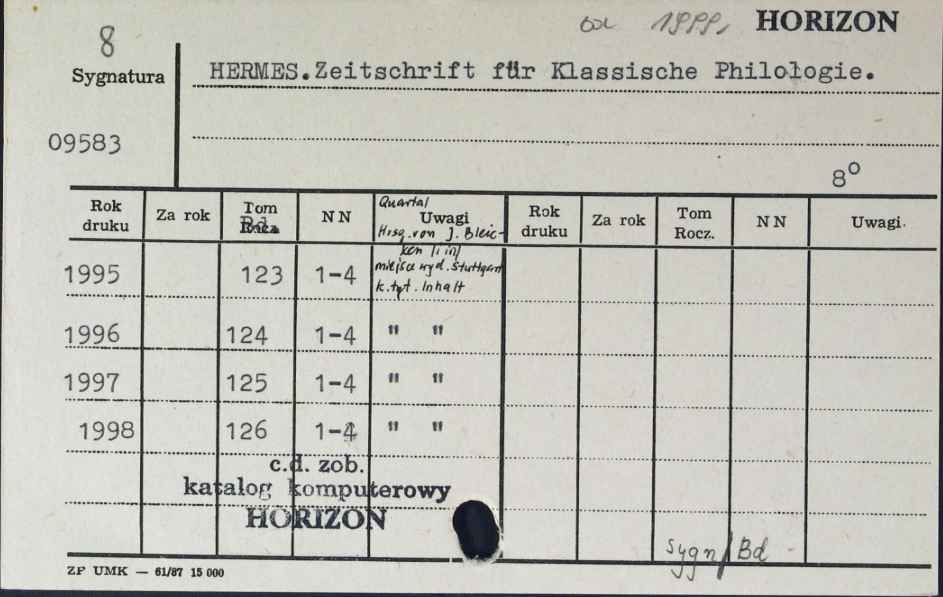 od 1999, HORIZON
8
Sygnatura
HERMES.Zeitschrift für Klassische Philologie.
09583
8°
Rok druku Za rok Tom Bd. Rocz. NN Uwagi Rok druku Za rok Tom Rocz. NN Uwagi.
Quartal
Hrsg. von J. Bleic-
ken /i in/
1995 123 1-4 miejsce wyd. Stuttgart
k.tyt. Inhalt
1996 124 1-4 " "
1997 125 1-4 " "
1998 126 1-4 " "
c.d. zob.
katalog komputerowy
HORIZON
Sygn/Bd
ZP UMK — 61/87 15 000